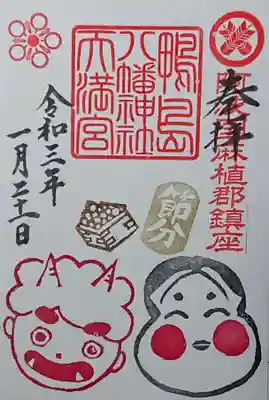 奉拝
阿波麻植郡鎮座
鴨島
八幡神社
天満宮
令和三年
一月二十一日
節分